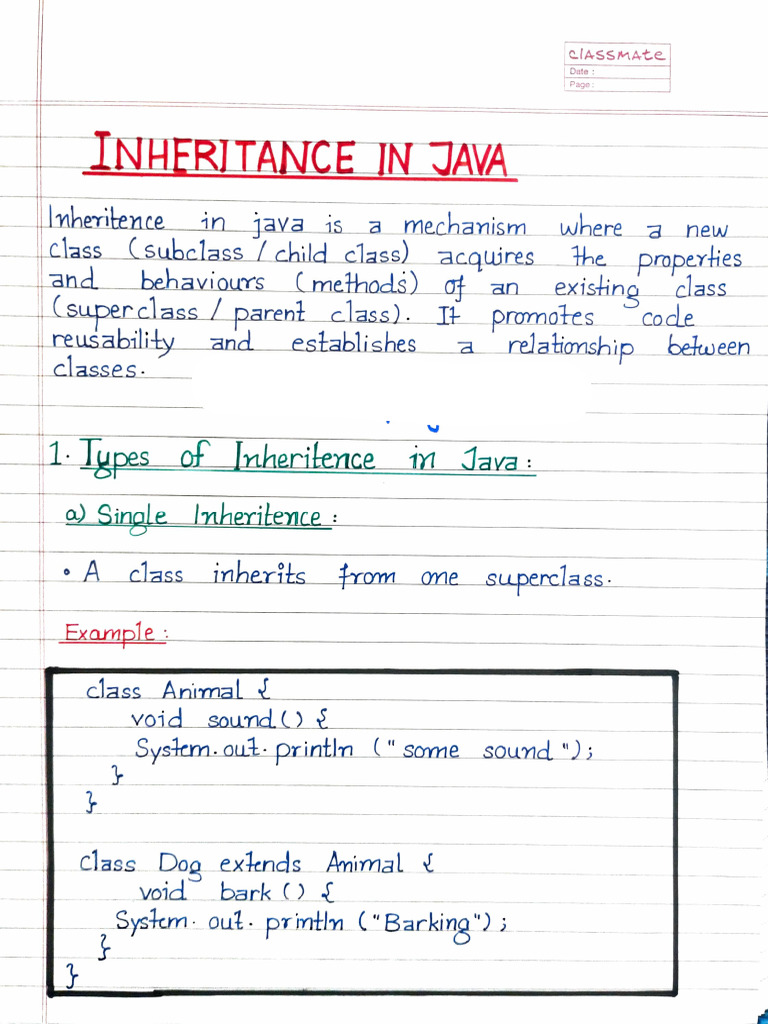 classmate
Date :
Page :
INHERITANCE IN JAVA
Inheritence in java is a mechanism where a new
class (subclass / child class) acquires the properties
and behaviours (methods) of an existing class
(superclass / parent class). It promotes code
reusability and establishes a relationship between
classes.
1. Types of Inheritence in Java :
a) Single Inheritence :
• A class inherits from one superclass.
Example :
class Animal {
void sound() {
System.out.println ("some sound");
}
}
class Dog extends Animal {
void bark () {
System.out.println ("Barking");
}
}